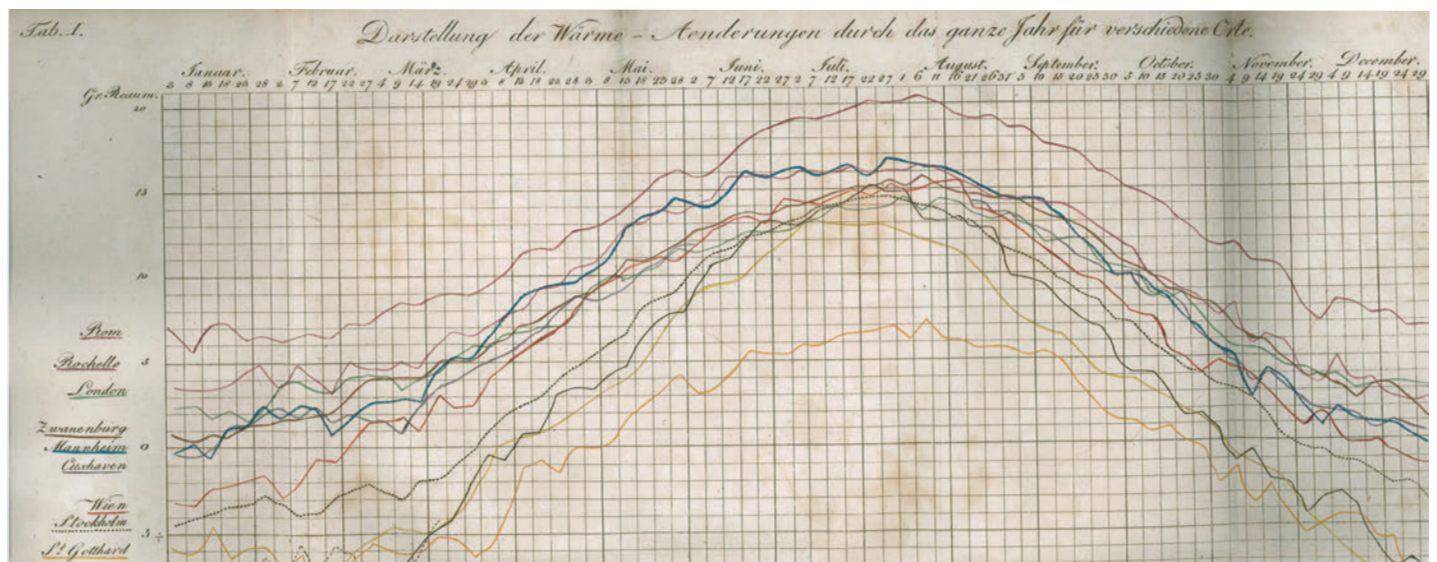 Tab. I.
Darstellung der Wärme - Aenderungen durch das ganze Jahr für verschiedene Orte.
Januar. Februar. März. April. Mai. Juni. Juli. August. September. October. November. December.
3 8 13 18 23 28 2 7 12 17 22 27 4 9 14 19 24 29 3 8 13 18 23 28 3 8 13 18 23 28 2 7 12 17 22 27 2 7 12 17 22 27 1 6 11 16 21 26 31 5 10 15 20 25 30 5 10 15 20 25 30 4 9 14 19 24 29 4 9 14 19 24 29
Gr. Reaum.
20
15
10
Rom
Rochelle 5
London
Zwanenburg
Mannheim 0
Cuxhaven
Wien
Stockholm
5
St Gotthard